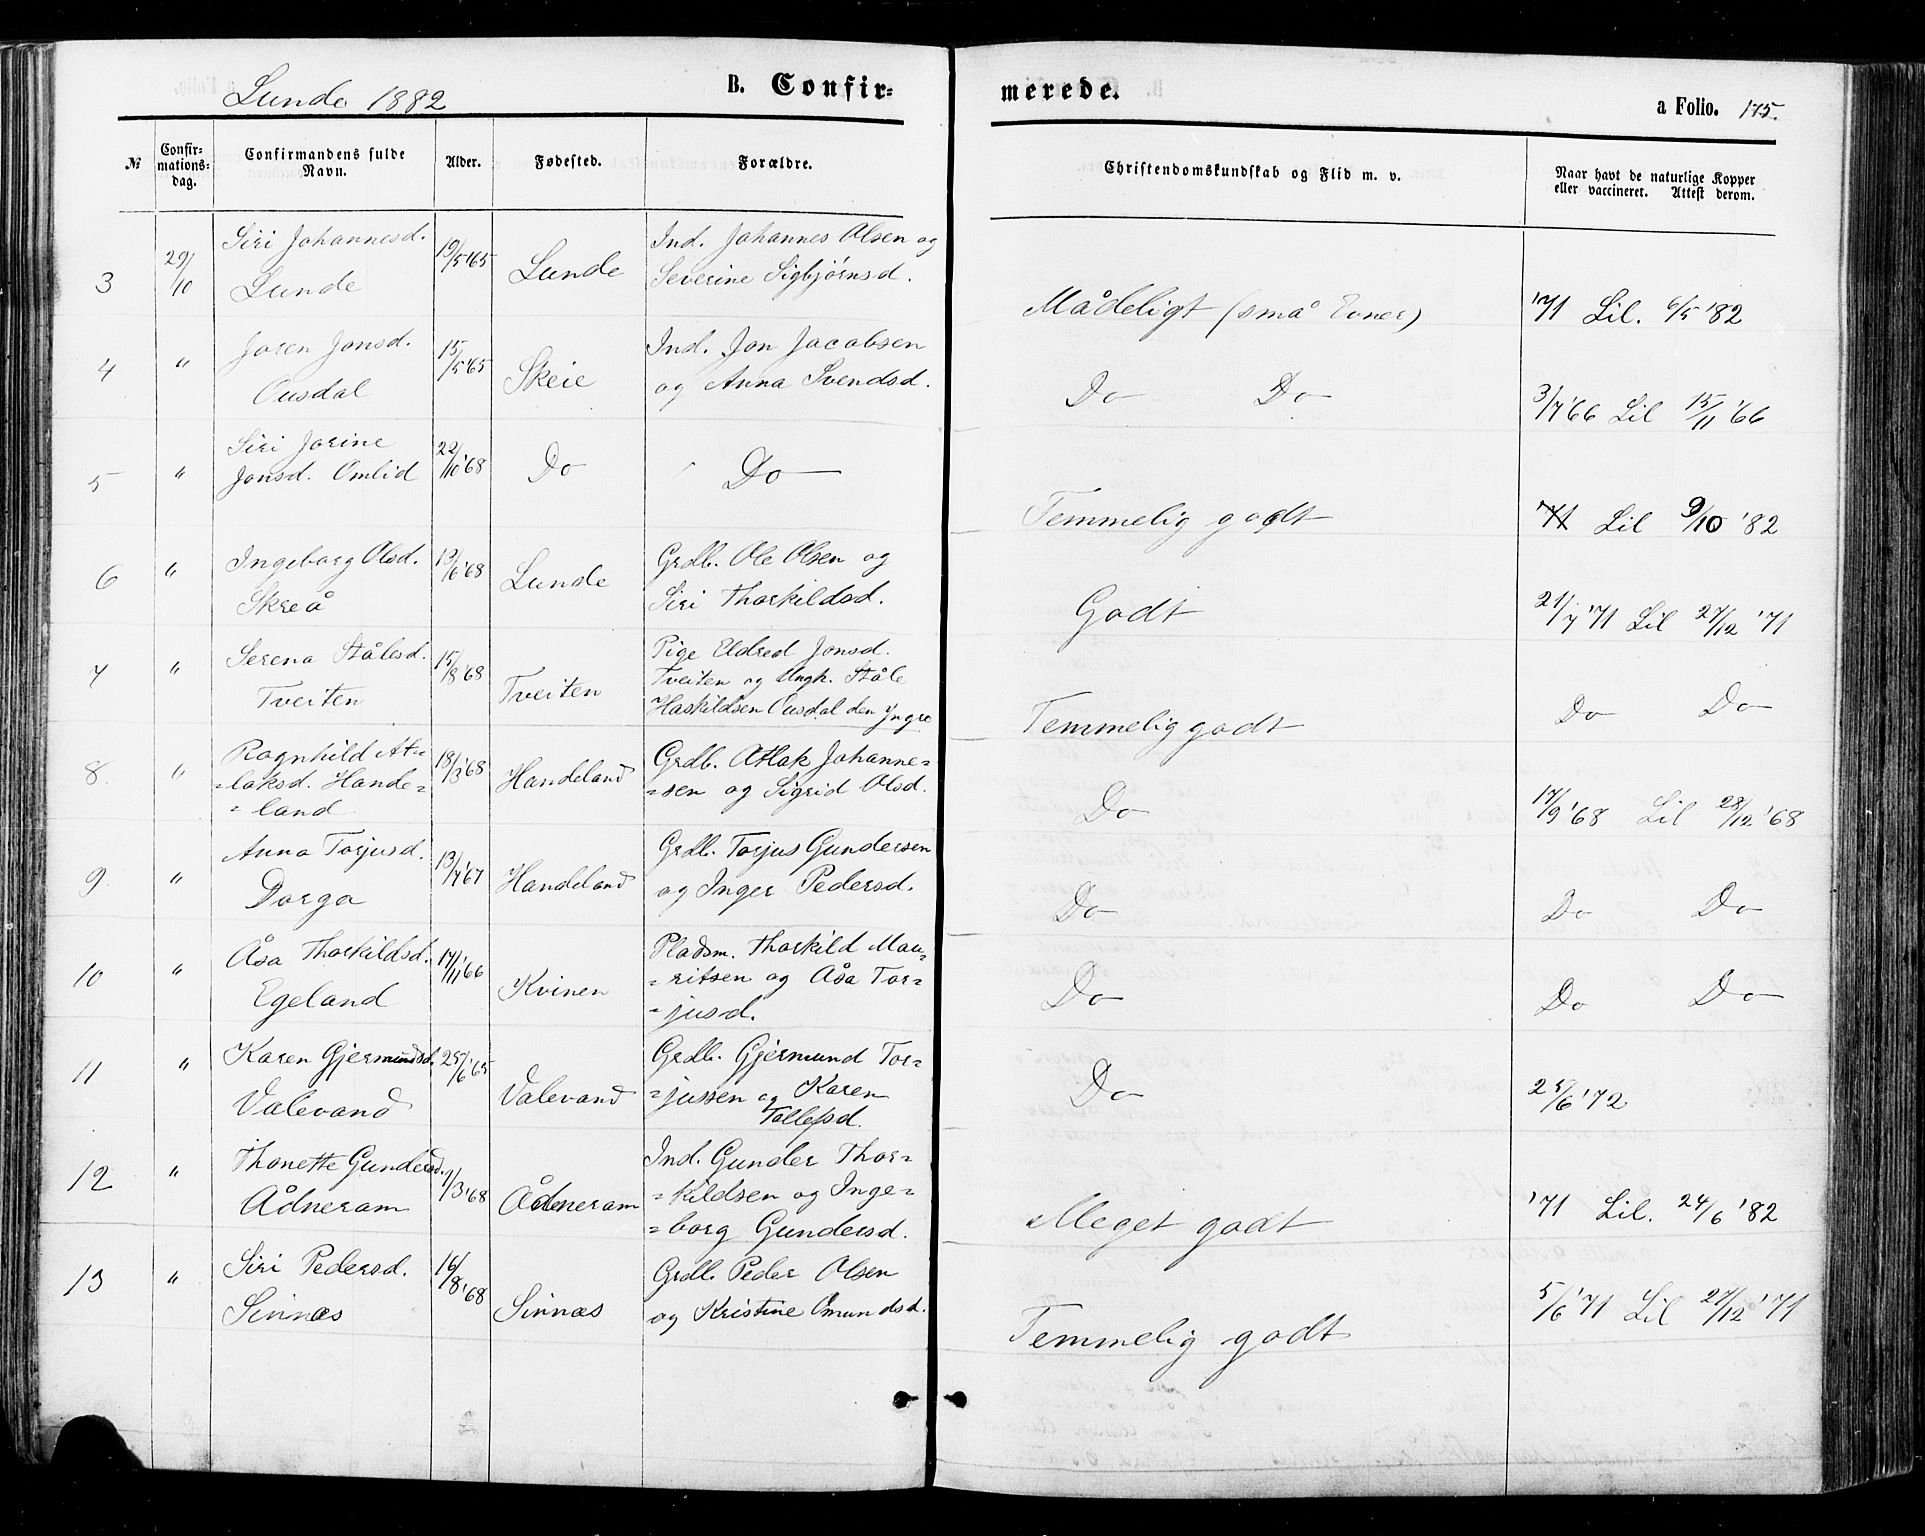 Lunde 1882
B. Confir-
merede.
a Folio. 175.
№
Confir-
mations-
dag.
Confirmandens fulde
Navn.
Alder.
Fødested.
Forældre.
Christendomskundskab og Flid m. v.
Naar havt de naturlige Kopper
eller vaccineret. Attest derom.
3 29/10 Siri Johannesd. Lunde 19/5 '65 Lunde Ind. Johannes Olsen og
Severine Sigbjørnsd.
Mådeligt (små Evner) '71 Lil. 6/5 '82
4 " Joren Jonsd. Ousdal 15/5 '65 Skeie Ind. Jon Jacobsen
og Anna Svendsd.
Do Do 3/7 '66 Lil 15/11 '66
5 " Siri Jorine
Jonsd. Omlid 22/10 '68 Do Do
Temmelig godt '71 Lil 9/10 '82
6 " Ingeborg Olsd.
Skreå 13/6 '68 Lunde Grdb. Ole Olsen og
Siri Thorkildsd.
Godt 21/7 '71 Lil 27/12 '71
7 " Serena Stålesd.
Tveiten 15/8 '68 Tveiten Pige Eldred Jonsd.
Tveiten og Ungk. Ståle
Haskildsen Ousdal den Yngre
Temmelig godt Do Do
8. " Ragnhild At=
=laksd. Hande=
=land 18/3 '68 Handeland Grdb. Atlak Johanne=
=sen og Sigrid Olsd.
Do 17/9 '68 Lil 28/12 '68
9 " Anna Torjusd.
Dorga 13/7 '67 Handeland Grdb. Torjus Gundersen
og Inger Pedersd.
Do Do Do
10 " Åsa Thorkildsd.
Egeland 17/11 '66 Kvinen Pladsm. Thorkild Mau=
=ritsen og Åsa Tor=
=jusd.
Do Do Do
11 " Karen Gjermundsd.
Valevand 25/6 '65 Valevand Grdb. Gjermund Tor=
=jussen og Karen
Tollefsd.
Do 25/6 '72
12 " Thonette Gundersd.
Ådneram 1/3 '68 Ådneram Ind. Gunder Thor=
=kildsen og Inge=
=borg Gundersd.
Meget godt '71 Lil. 24/6 '82
13 " Siri Pedersd.
Sinnæs 16/8 '68 Sinnæs Grdb. Peder Olsen
og Kristine Omundsd.
Temmelig godt 5/6 '71 Lil 27/12 '71